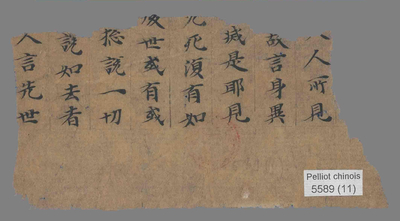 人人所見
故言身異
滅是耶見
死復有如
後世或有或
揔說一切
說如去者
人言先世
Pelliot chinois
5589 (11)